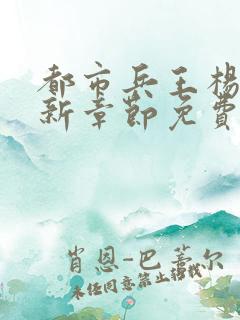 都市兵王杨
新章节免费
肖恩-巴蒂尔
未经同意禁止转载